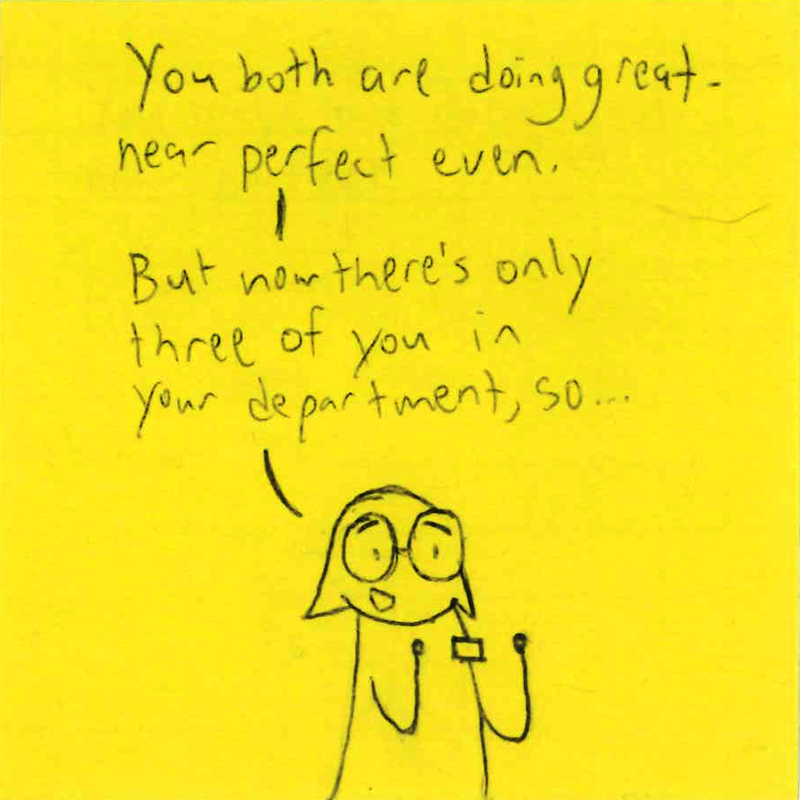 You both are doing great-
near perfect even.
But now there's only
three of you in
your department, so...